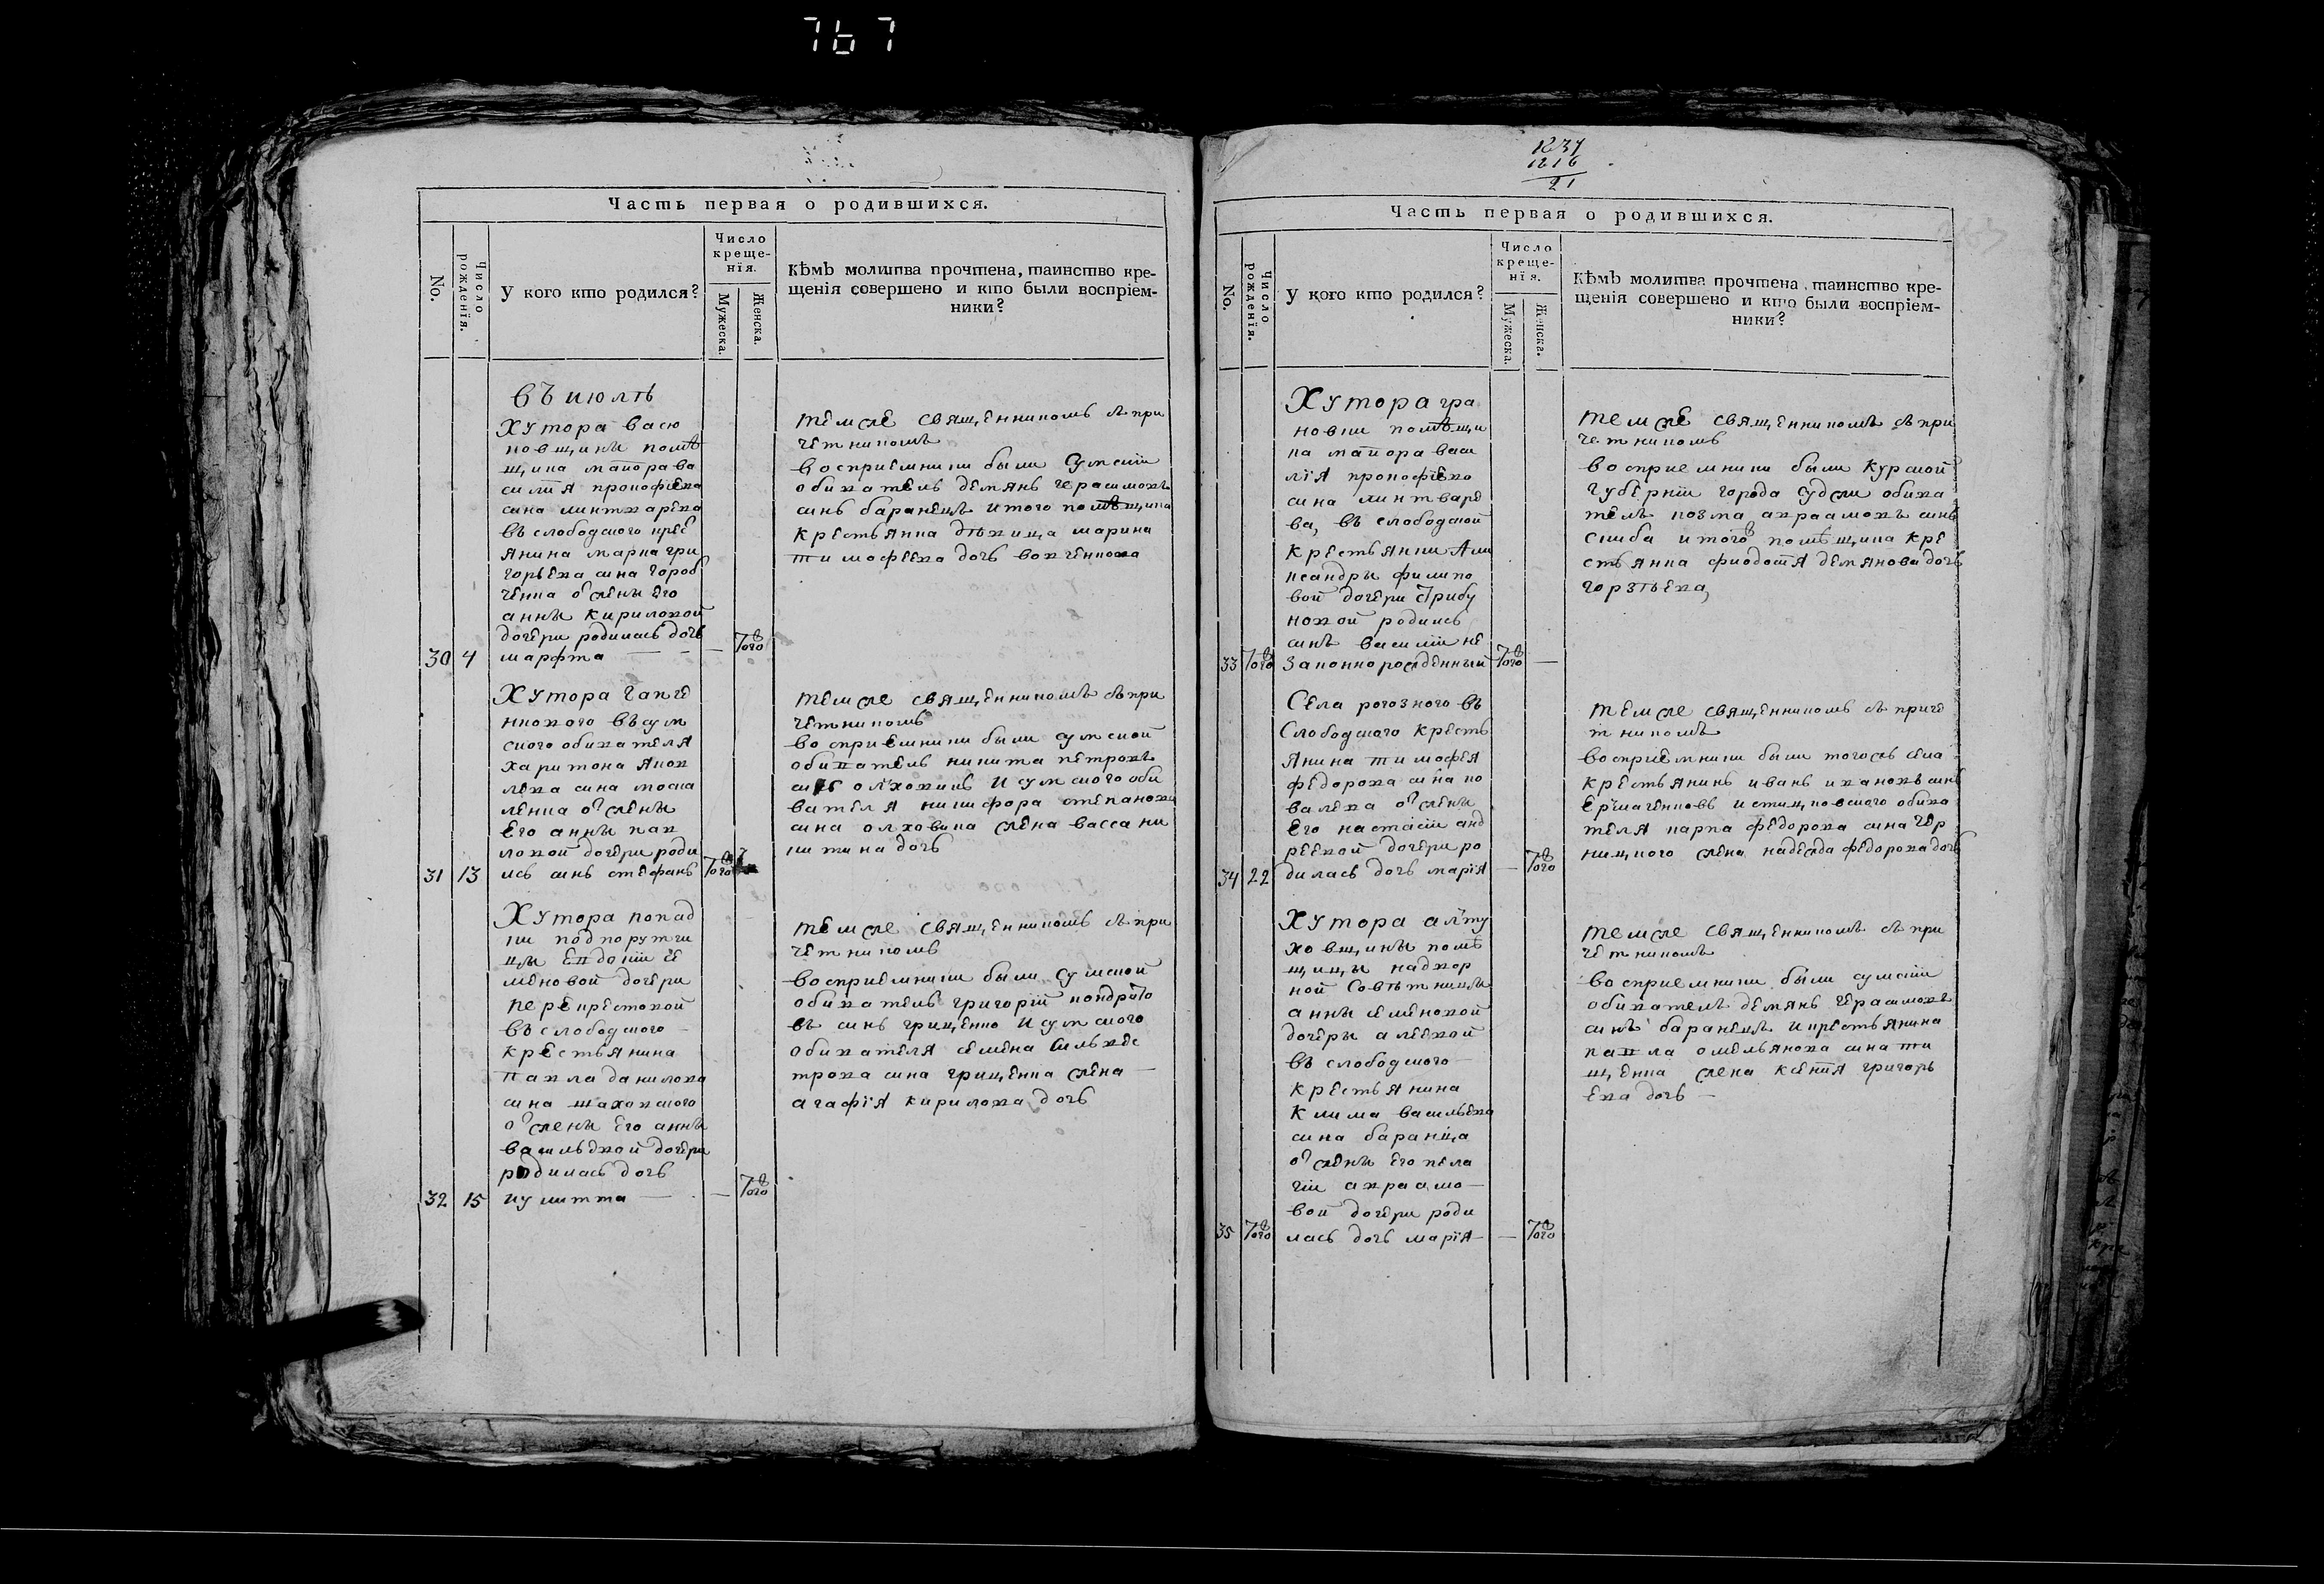 767
Часть первая о родившихся.
No.
Число рожденія.
У кого кто родился?
Число креще-
нія.
Мужеска.
Женска.
Кѣмъ молитва прочтена, таинство кре-
щенія совершено и кто были воспріем-
ники?
въ июлѣ
Хутора васю
ковщины помѣ
щика маиора ва
силія прокофіева
сина линтварева
въ слободского кре
янина марка гри
горьева сина город
ченка о жены его
анны кириловой
дочери родилась дочь
30 4 марфта — — того
темже священникомъ съ при
четникомъ
восприемники были сумскіи
обиватель демянъ герасимовъ
синъ баранецъ и того помѣщика
крестьянка дѣвица марина
тимофеева дочь
Хутора
въ сум
ского обивателя
харитона яков
лева сина моска
ленка о жены
его анны пав
ловой дочери роди
31 13 лсь синъ стефанъ того
темже священникомъ съ при
четникомъ
восприемники были сумской
обиватель никита петровъ
олховикъ и сумского оби
вателя никифора степанова
сина олховика жена васса ни
китина дочь
Хутора попад
ки подпорутчи
цы евдокіи се
меновой дочери
перекрестовой
въ слободского
крестьянина
павла данилова
сина шаховского
о жены его анны
васильевой дочери
родилась дочь
32 15 иулитта — — того
темже священникомъ съ при
четникомъ
восприемники были сумской
обиватель григорій кондрато
въ синъ гриценко и сумского
обивателя семена сильвес
трова сина гриценка жена —
агафія кирилова дочь
1237
1216
21
Часть первая о родившихся.
No.
Число рожденія.
У кого кто родился?
Число креще-
нія.
Мужеска.
Женска.
Кѣмъ молитва прочтена, таинство кре-
щенія совершено и кто были воспріем-
ники?
Хутора гра
новки помѣщи
ка маиора васи
лія прокофіева
сина линтваре
ва, въ слободской
крестьянки але
ксандры филипо
вой дочери грибу
новой родилсь
синъ василіи не
33 того законнорожденный того —
темже священникомъ съ при
четникомъ
восприемники были курской
губерніи города суджи обива
тель козма авраамовъ синъ
скиба и того помѣщика кре
стьянка фиодотія демянова дочь
Села рогозного въ
слободского кресть
янина тимофея
федорова сина ко
валева о жены
его настасіи анд
реевой дочери ро
34 22 дилась дочь марія — того
темже священникомъ съ приче
тникомъ
восприемники были тогожъ села
крестьянинъ иванъ ивановъ синъ
обива
теля карпа федорова сина чер
жена надежда федорова дочь
Хутора алту
ховщины помѣ
щицы надвор
ной совѣтницы
анны семеновой
дочеры алеевой
въ слободского —
крестьянина
клима васильева
сина баранца
о жены его пела
гіи авраамо —
вой дочери роди
35 того лась дочь марія — — того
темже священникомъ съ при
четникомъ
восприемники были сумскіи
обиватель демянъ герасимовъ
синъ баранецъ и крестьянина
павла омельянова сина ти
щенка жена ксенія григорь
ева дочь —